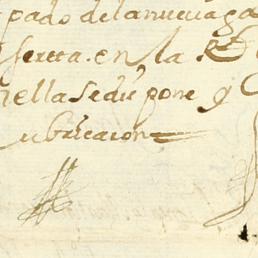 pado de la nueua ga
sereta. en la Rl
nella se dispone q
ubricacion